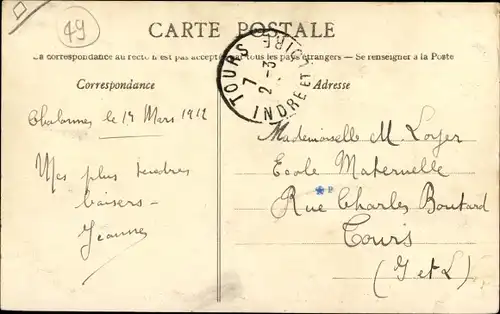 49
CARTE POSTALE
La correspondance au recto n'est pas acceptée par tous les pays étrangers — Se renseigner à la Poste
TOURS
7
2-3
INDRE ET LOIRE
Correspondance
Adresse
Chalonnes le 19 Mars 1912
Mes plus tendres
baisers -
Jeanne
Mademoiselle M. Loyer
Ecole Maternelle
Rue Charles Boutard
Tours
(I et L)